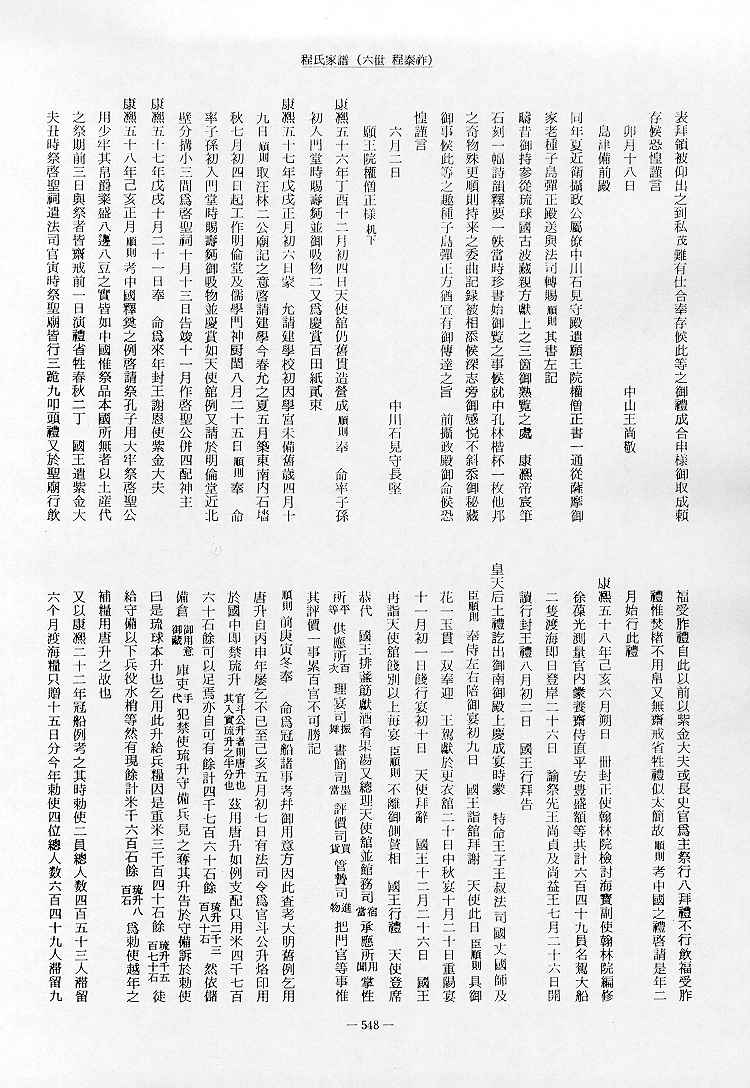 程氏家譜（六世 程泰祚）
表拜領被仰出之到私茂難有仕合奉存候此等之御禮成合申樣御取成頼
存候恐惶謹言
卯月十八日 中山王尚敬
島津備前殿
同年夏近衛攝政公屬僚中川石見守殿遣願王院權僧正書一通從薩摩御
家老種子島彈正殿送與法司轉賜順則其書左記
疇昔御持參從琉球國古波藏親方獻上之三箇御熟覧之處 康熙帝宸筆
石刻一幅詩韻釋要一帙當時珍書始御覧之事候就中孔林楷杯一枚他邦
之奇物殊更順則持來之委曲記録被相添候深志旁御感悦不斜忝御秘藏
御事候此等之趣種子島彈正方猶宜有御傳達之旨 前攝政殿御命候恐
惶謹言
六月二日 中川石見守長堅
願王院權僧正樣 机下
康熙五十六年丁酉十二月初四日天使舘仍舊貫造營成順則奉 命率子孫
初入門堂時賜壽麪並御吸物二又爲慶賞百田紙貳束
康熙五十七年戊戌正月初六日蒙 允請建學校初因學宮未備舊歳四月十
九日順則取汪林二公廟記之意啓請建學今春允之夏五月築東南内石墻
秋七月初四日起工作明倫堂及儒學門神厨閏八月二十五日順則奉 命
率子孫初入門堂時賜壽麪御吸物並慶賞如天使舘例又請於明倫堂近北
壁分搆小三間爲啓聖祠十月十三日告竣十一月作啓聖公併四配神主
康熙五十七年戊戌十月二十一日奉 命爲來年封王謝恩使紫金大夫
康熙五十八年己亥正月順則考中國釋奠之例啓請祭孔子用大牢祭啓聖公
用少牢其帛爵粢盛八邊八豆之實皆如中國惟祭品本國所無者以土産代
之祭期前三日與祭者皆齋戒前一日演禮省牲春秋二丁 國王遣紫金大
夫丑時祭啓聖祠遣法司官寅時祭聖廟皆行三跪九叩頭禮又於聖廟行飲
福受胙禮自此以前以紫金大夫或長史官爲主祭行八拜禮不行飲福受胙
禮惟焚楮不用帛又無齋戒省牲禮似太簡故順則考中國之禮啓請是年二
月始行此禮
康熙五十八年己亥六月朔日 冊封正使翰林院檢討海寶副使翰林院編修
徐葆光測量官内豢養齋侍直平安豊盛額等共計六百四十九員名駕大船
二隻渡海即日登岸二十六日 諭祭先王尚貞及尚益王七月二十六日開
讀行封王禮八月初二日 國王行拜告
皇天后土禮訖出御南御殿上慶成宴時蒙 特命王子王叔法司國丈國師及
臣順則奉侍左右陪御宴初九日 國王詣舘拜謝 天使此日臣順則具御
花一玉貫一双奉迎 王駕獻於更衣舘二十日中秋宴十月二十日重陽宴
十一月初一日餞行宴初十日 天使拜辭 國王十二月二十六日 國王
再詣天使舘餞別以上毎宴臣順則不離御側賛相 國王行禮 天使登席
恭代 國王排盞筯獻酒肴果湯又總理天使舘並館務司宿當承應所用聞掌牲
所平等供應所百次理宴司振舞書簡司墨當評價司買貨管贊司進物把門官等事惟
其評價一事累百官不可勝記
順則前庚寅冬奉 命爲冠船諸事考幷御用意方因此査考大明舊例乞用
唐升自丙申年屡乞不已至己亥五月初七日有法司令爲官斗公升烙印用
於國中即禁琉升官斗公升者則唐升也其入實琉升之半分也茲用唐升如例支配只用米四千七百
六十石餘可以足焉亦自可有餘計四千七百六十石餘琉升二千三百八十石然依儲
備倉御用意御藏庫吏手代犯禁使琉升守備兵見之奪其升告於守備訴於勅使
曰是琉球本升也乞用此升給兵糧因是重米三千百四十石餘琉升千五百七十石徒
給守備以下兵役水梢等然有現餘計米千六百石餘琉升八百石爲勅使越年之
補糧用唐升之故也
又以康熙二十二年冠船例考之其時勅使二員總人数四百五十三人滞留
六个月渡海糧只贈十五日分今年勅使四位總人数六百四十九人滞留九
— 548 —